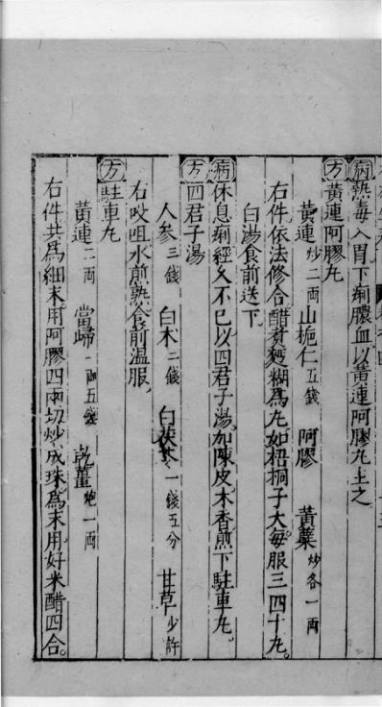 病熱毒入胃下痢膿血以黃連阿膠丸主之
方黃連阿膠丸
黃連炒二両 山梔仁五錢 阿膠 黃蘗炒各一両
右件依法修合醋煑麪糊爲丸如梧桐子大每服三四十丸。
白湯食前送下
病休息痢經久不已以四君子湯加陳皮木香煎下駐車丸。
方四君子湯
人參三錢 白朮二錢 白茯苓一錢五分 甘草少許
右㕮咀水煎熟食前溫服
方駐車丸
黃連二両 當歸一両五錢 乾薑炮一両
右件共爲細末用阿膠四兩切炒成珠爲末用好米醋四合。